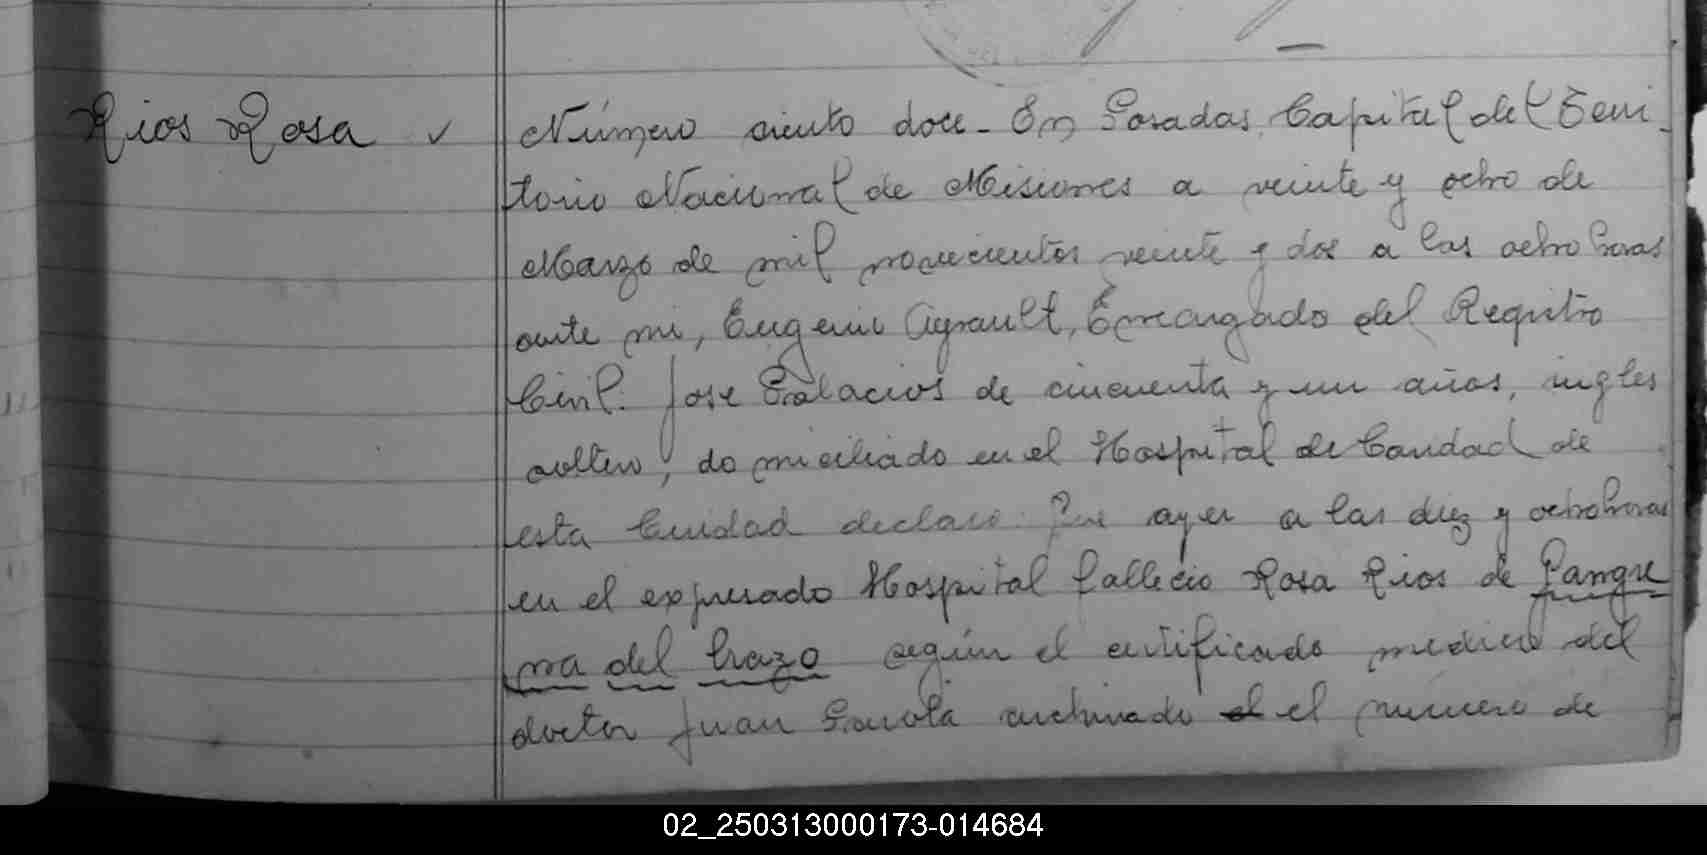 Rios Rosa ✓
Número ciento doce - En Posadas, Capital del Terri-
torio Nacional de Misiones a veinte y ocho de
Marzo de mil novecientos veinte y dos a las ocho horas
ante mi, Eugenio Ayrault, Encargado del Registro
Civil. Jose Palacios de cincuenta y un años, ingles
soltero, domiciliado en el Hospital de Caridad de
esta Ciudad declaro: Que ayer a las diez y ocho horas
en el expresado Hospital fallecio Rosa Rios de Gangre
na del brazo según el certificado medico del
doctor Juan archivado el el número de
02_250313000173-014684